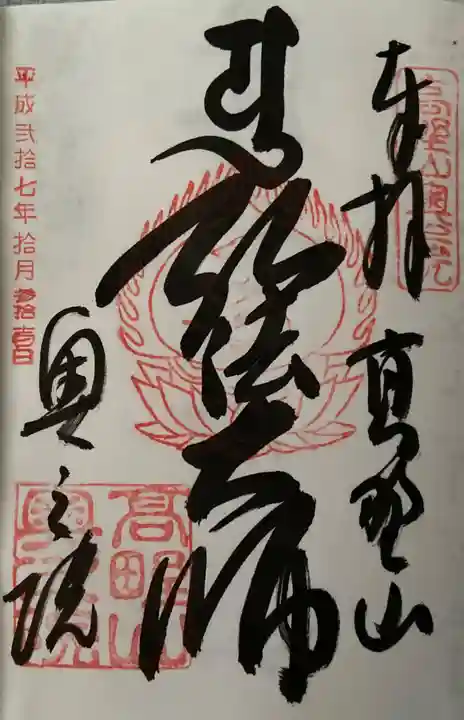 奉拝 高野山
高野山奥之院
弘法大師
奥之院
高野山
奥之院
平成弐拾七年拾月参拾壹日